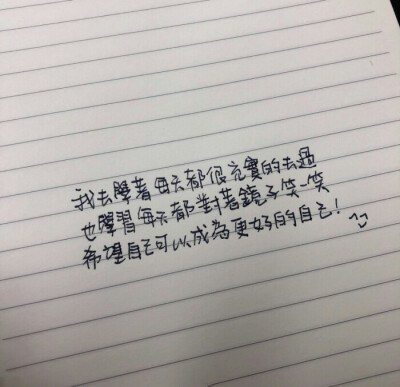 我去學著每天都很充實的去過
也學習每天都對著鏡子笑一笑
希望自己可以成為更好的自己!